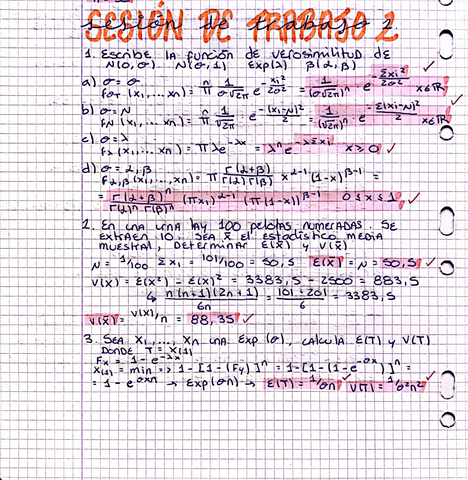 SESIÓN DE TRABAJO 2
1. Escribe la función de verosimilitud de
N(0,σ) N(θ,1) Exp(λ) β(α,β)
a) θ = σ
fσ (x1, ... xn) = π 1/(σ√2π) e^-xi²/2σ² = 1/(σ√2π)^n · e^-Σxi²/2σ² x∈ℝ ✓
b) θ = N
fN (x1, ... xn) = π 1/√2π · e^-(xi-N)²/2 = 1/(√2π)^n · e^-Σ(xi-N)²/2 x∈ℝ ✓
c) θ = λ
fλ (x1, ... xn) = π λe^-λx = λ^n e^-λΣxi x ≥ 0 ✓
d) θ = α, β
fα,β (x1, ..., xn) = π Γ(α+β)/Γ(α)Γ(β) x^α-1 (1-x)^β-1 =
= Γ(α+β)^n/Γ(α)^n Γ(β)^n (πxi)^α-1 (π(1-xi))^β-1 0 ≤ x ≤ 1 ✓
2. En una urna hay 100 pelotas numeradas. Se
extraen 10. Sea x̄ el estadístico media
muestral, determinar E(x̄) y V(x̄)
N = 1/100 Σxi = 101/100 = 50,5 E(x̄) = N = 50,5 ✓
V(x) = E(x²) - E(x)² = 3383,5 - 2500 = 883,5
↳ n(n+1)(2n+1)/6n = 101·201/6 = 3383,5
V(x̄) = V(x)/n = 88,35 ✓
3. Sea X1, ..., Xn una Exp(θ), calcula E(T) y V(T)
donde T = X(1)
Fx = 1 - e^-λx
X(1) = min => 1-[1-(Fy)]^n = 1-[1-(1-e^-θx)]^n =
= 1 - e^θxn → Exp(θn) → E(T) = 1/θn V(T) = 1/θ²n² ✓